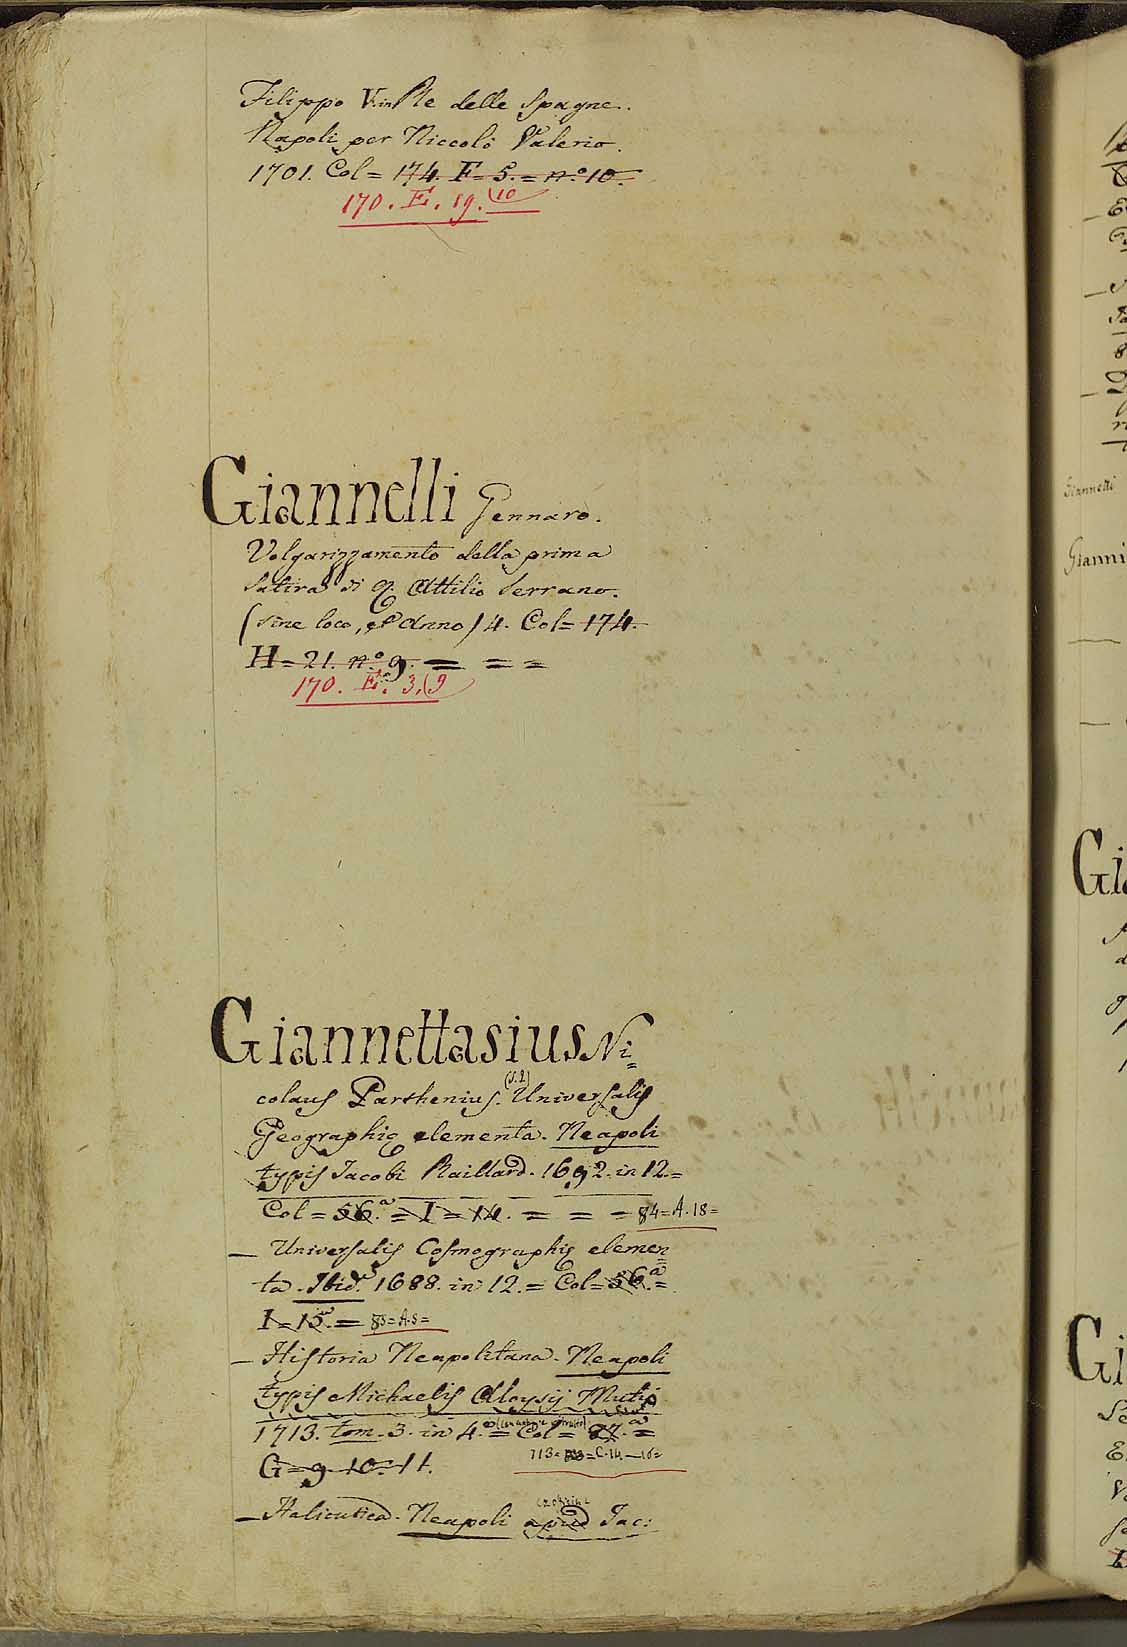 Filippo V. in Re delle Spagne.
Napoli per Niccolò Valerio.
1701. Col = 174. F = 5. = n.º 10.
170. E. 19. (10
Giannelli Gennaro.
Volgarizzamento della prima
Satira di Q. Attilio Serrano.
(sine loco, et Anno) 4. Col = 174.
H = 21. n.º 9. = = =
170. E. 3. (9
Giannettasius Ni=
colaus Parthenius. Universalis
Geographię elementa. Neapoli
typis Jacobi Raillard. 1692. in 12. =
Col = 56.ª = I = 14. = = = 84 = A. 18 =
— Universalis Cosmographię elemen
ta. Ibid. 1688. in 12. = Col = 56.ª =
I = 15. = 85 = A. 8 =
— Historia Neapolitana. Neapoli
typis Michaelis Aloysij Mutij
1713. tom. 3. in 4.º = Col = 87.ª =
G = 9. 10. 11.
113 = C. 14. — 16 =
— Halieutica. Neapoli apud Jac:
Giannetti
Gianni